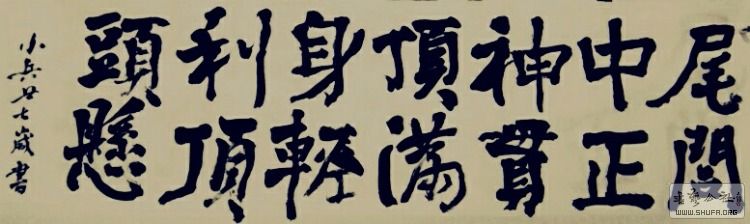 尾閭
中正
神貫
頂滿
身輕
利頂
頭懸
小兵廿七歲書
WWW.SHUFA.ORG